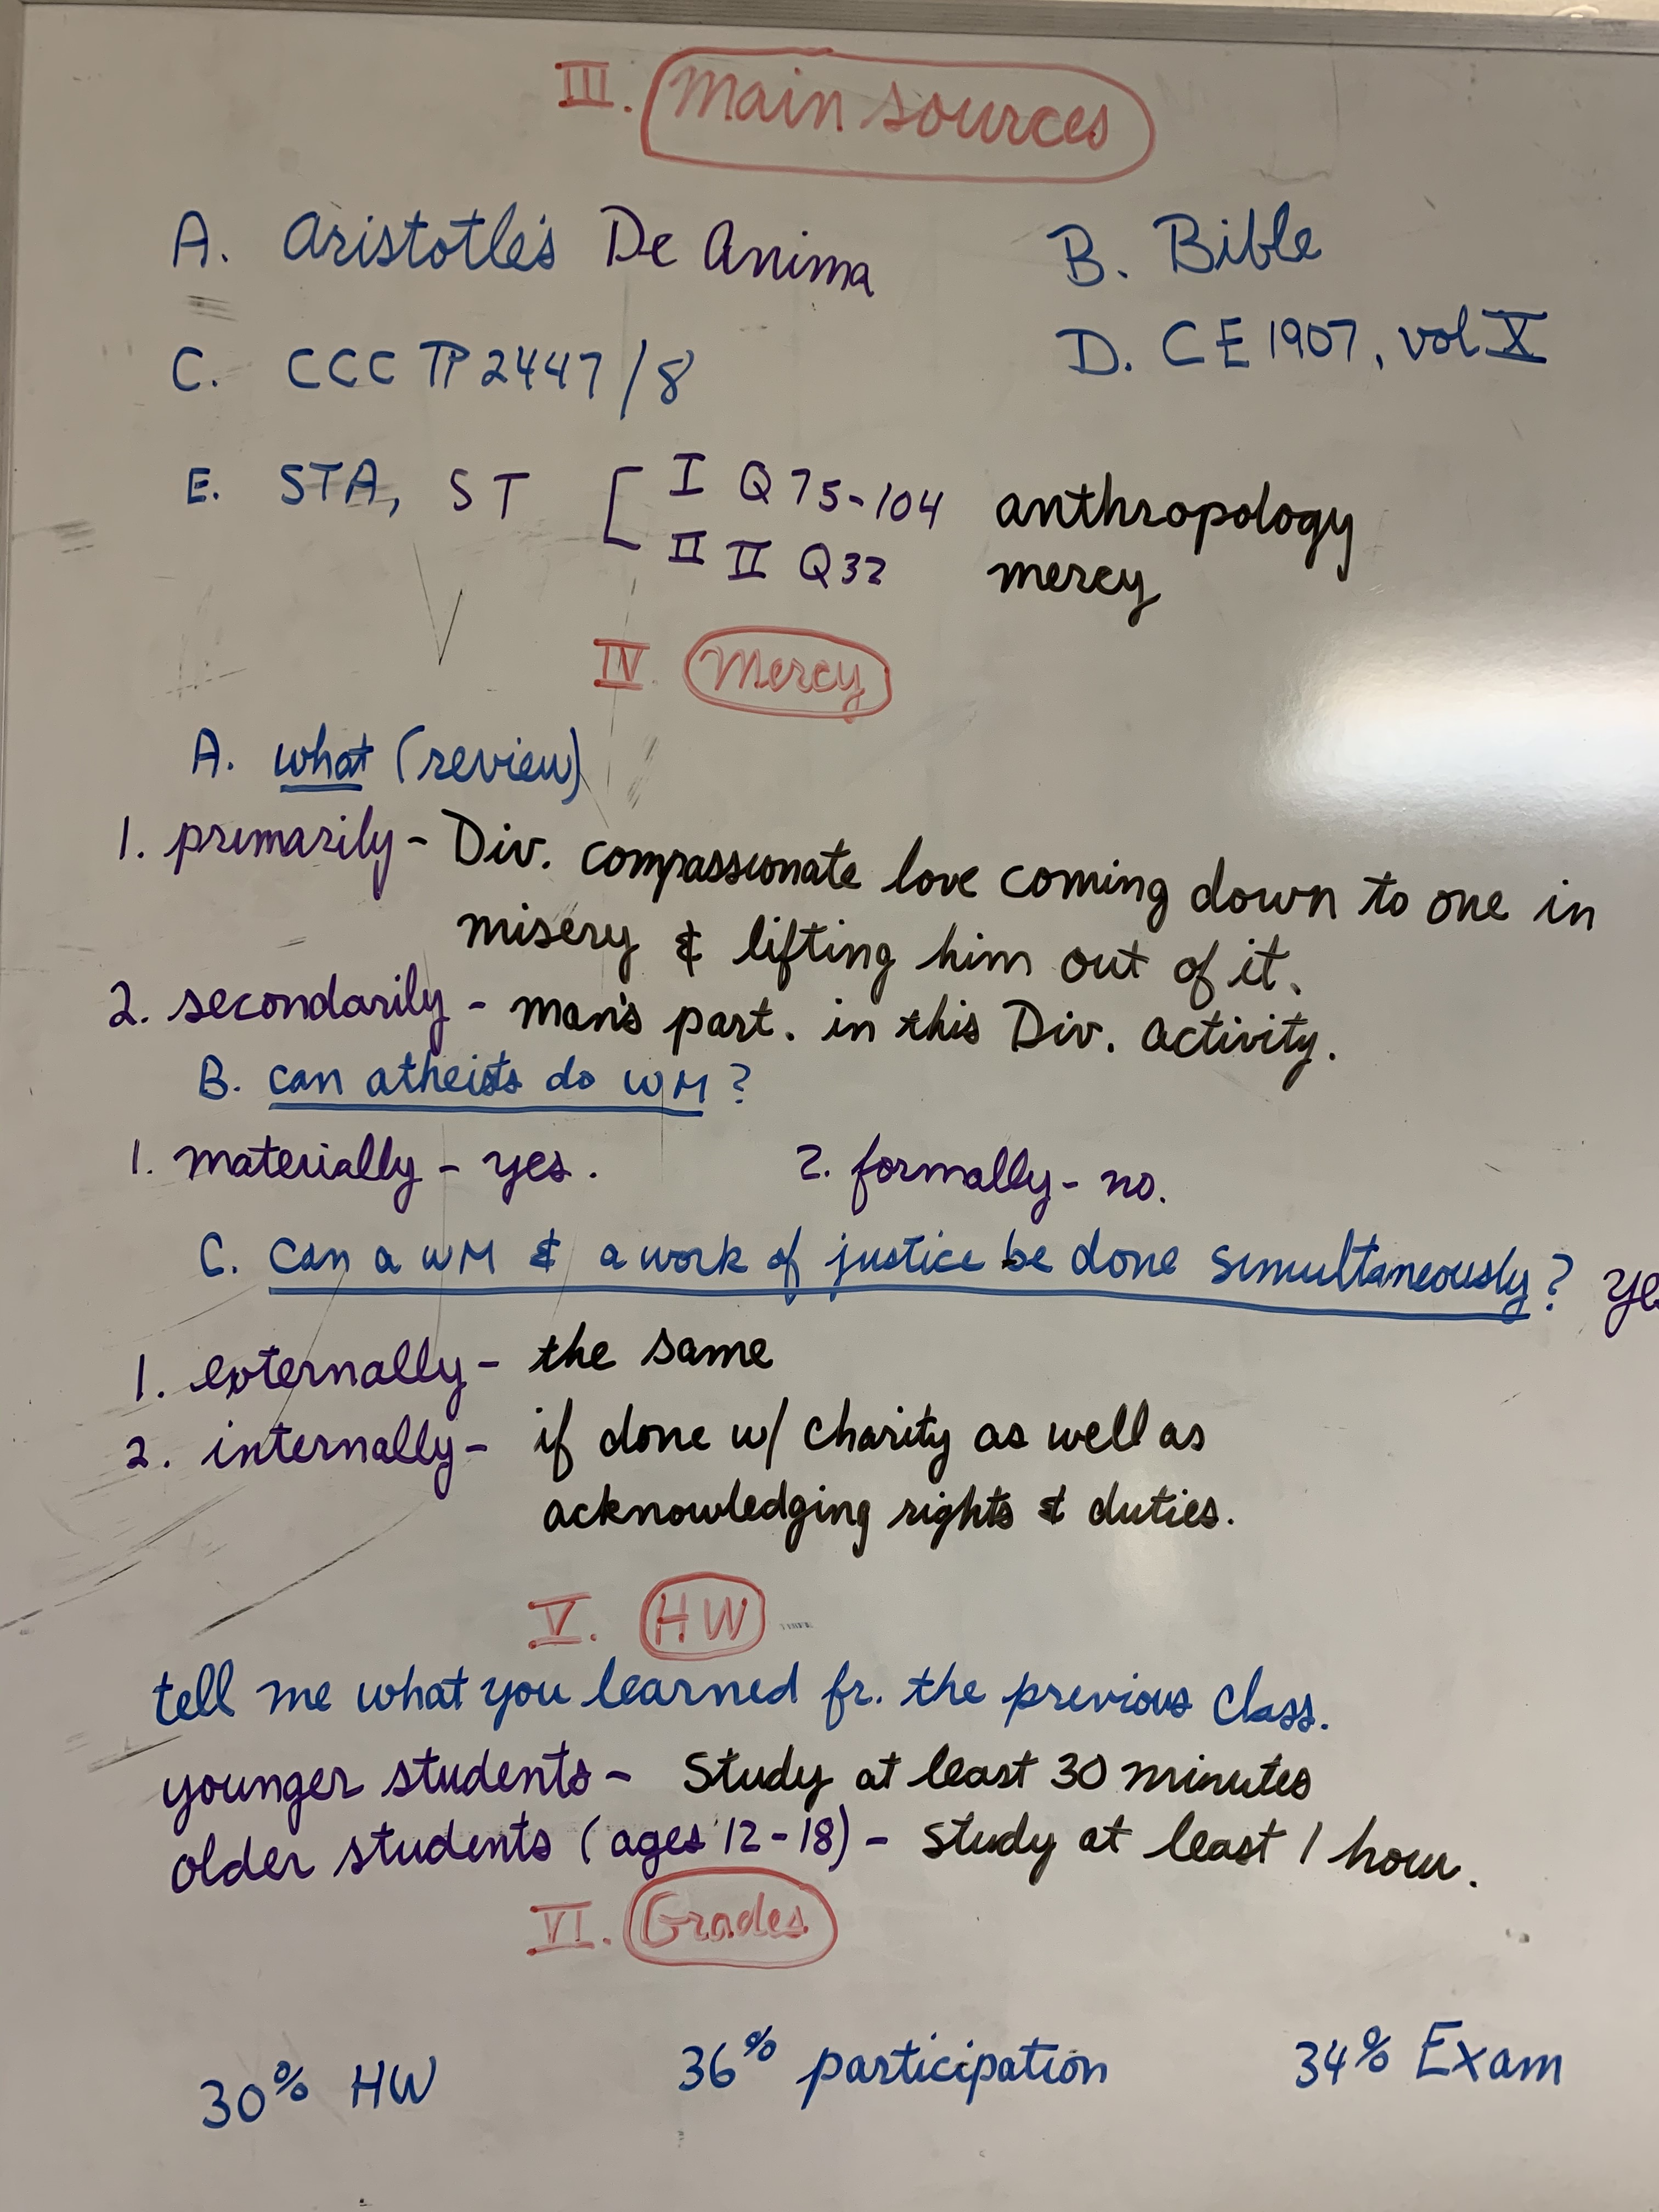 III. Main sources
A. Aristotle's De Anima B. Bible
C. CCC ¶¶ 2447/8 D. CE 1907, vol X
E. STA, ST [ I Q 75-104 anthropology
II II Q32 mercy
IV. Mercy
A. what (review)
1. primarily - Div. compassionate love coming down to one in
misery & lifting him out of it.
2. secondarily - man's part. in this Div. activity.
B. can atheists do WM?
1. materially - yes. 2. formally - no.
C. Can a WM & a work of justice be done simultaneously?
1. externally - the same
2. internally - if done w/ charity as well as
acknowledging rights & duties.
V. HW
tell me what you learned fr. the previous class.
younger students - Study at least 30 minutes
older students (ages 12-18) - study at least 1 hour.
VI. Grades
30% HW 36% participation 34% Exam